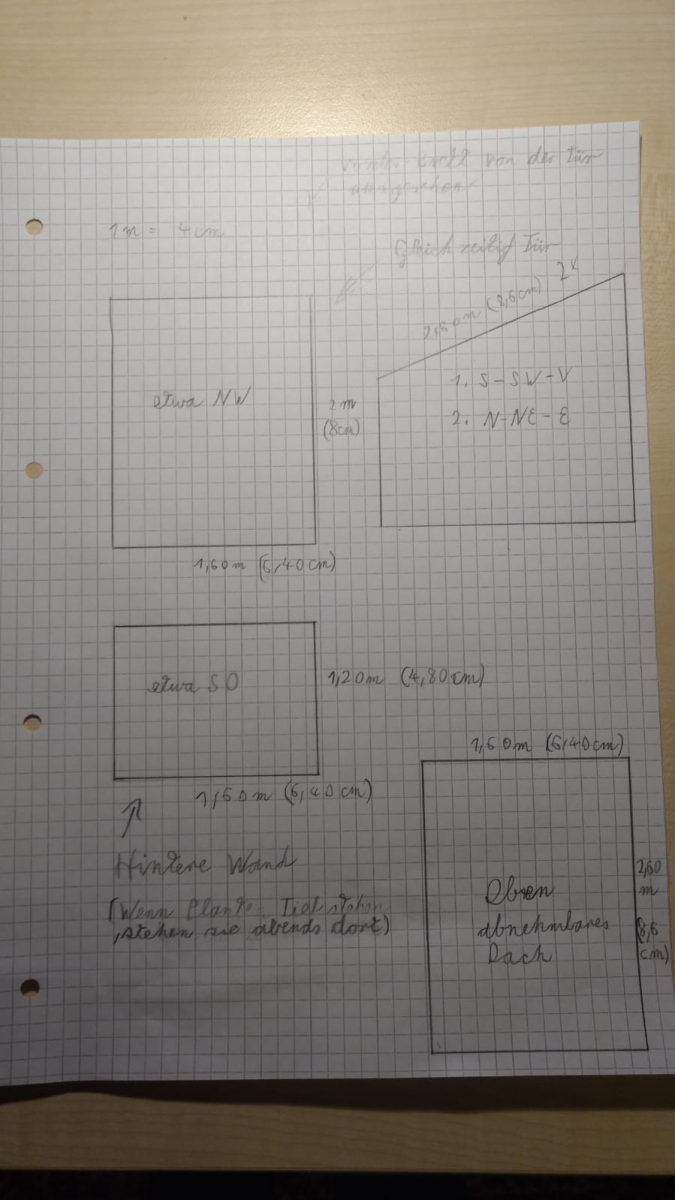 von der Tür
ausgesehen
1m = 4cm
Gleichzeitig Tür
2,60m (8,6cm) 2x
etwa NW
2m
(8cm)
1. S-SW-V
2. N-NE-E
1,60m (6,40cm)
etwa SO
1,20m (4,80cm)
1,60m (6,40cm)
1,60m (6,40cm)
Hintere Wand
(Wenn
,stehen sie abends dort)
Oben
abnehmbares
Dach
2,60
m
(8,6
cm)